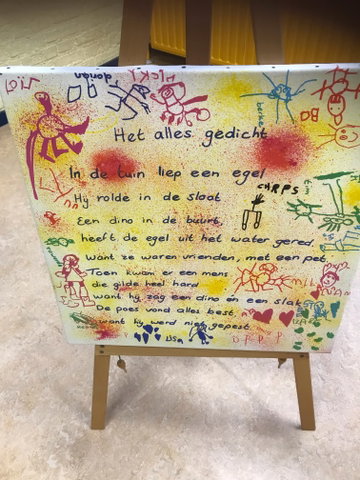 dorian
MICKY
Het alles gedicht
In de tuin liep een egel
Hij rolde in de sloot
CHRPS
Een dino in de buurt,
heeft de egel uit het water gered.
Want ze waren vrienden, met een pet.
Toen kwam er een mens
die gilde heel hard
want hij zag een dino en een slak
De poes vond alles best,
want hij werd niet gepest.
LISA